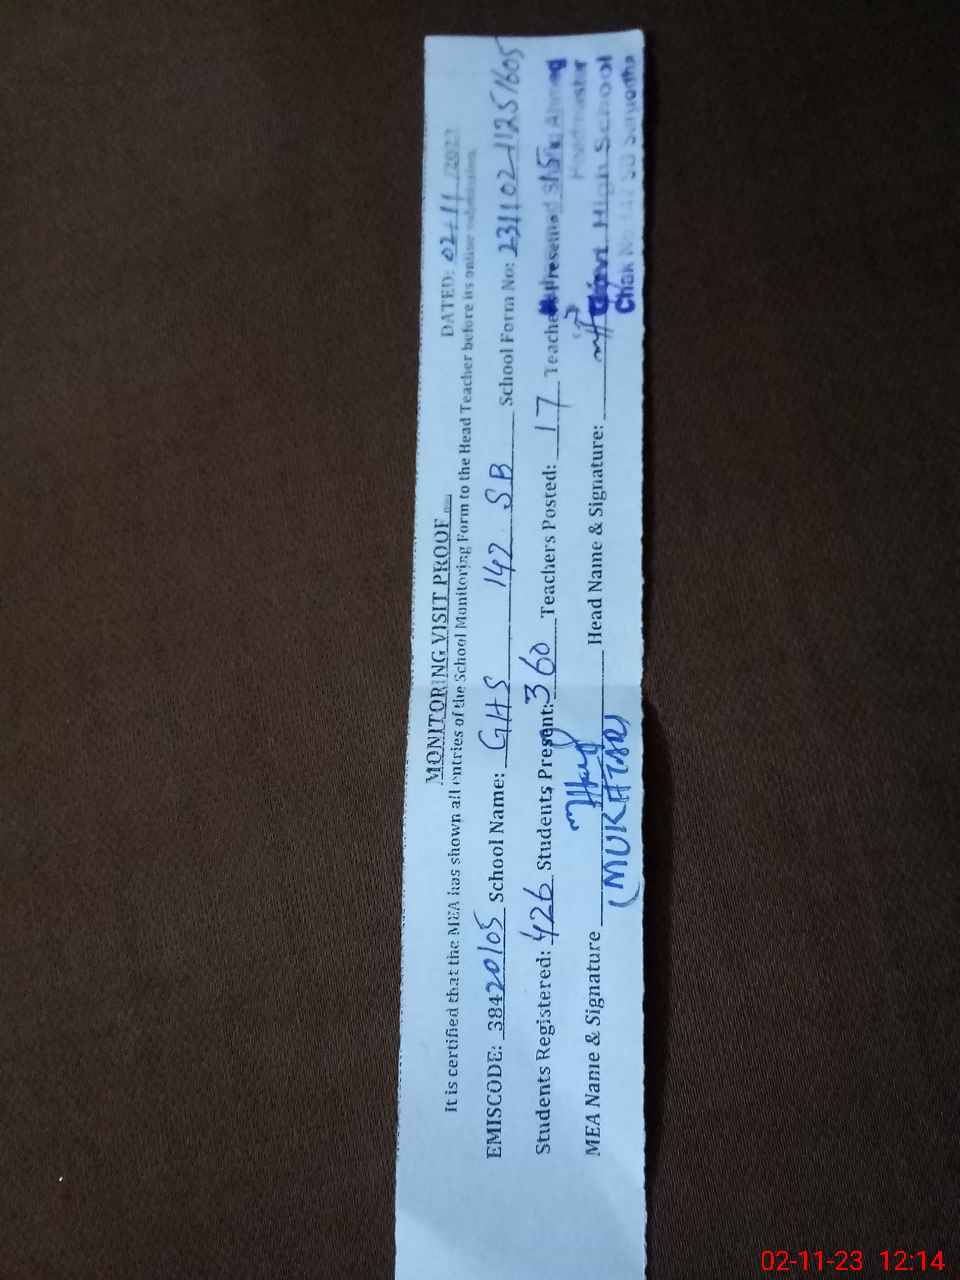 MONITORING VISIT PROOF
DATED: 02/11/2023
It is certified that the MEA has shown all entries of the School Monitoring Form to the Head Teacher before its online submission.
EMISCODE: 38420105 School Name: GHS 142 SB School Form No: 23110211251605
Students Registered: 426 Students Present: 360 Teachers Posted: 17 Teachers Present: 15
Ahmed
Headmaster
MEA Name & Signature Head Name & Signature:
(MUKHTAR)
Govt High School
Chak No 142 SB Sargodha
02-11-23 12:14